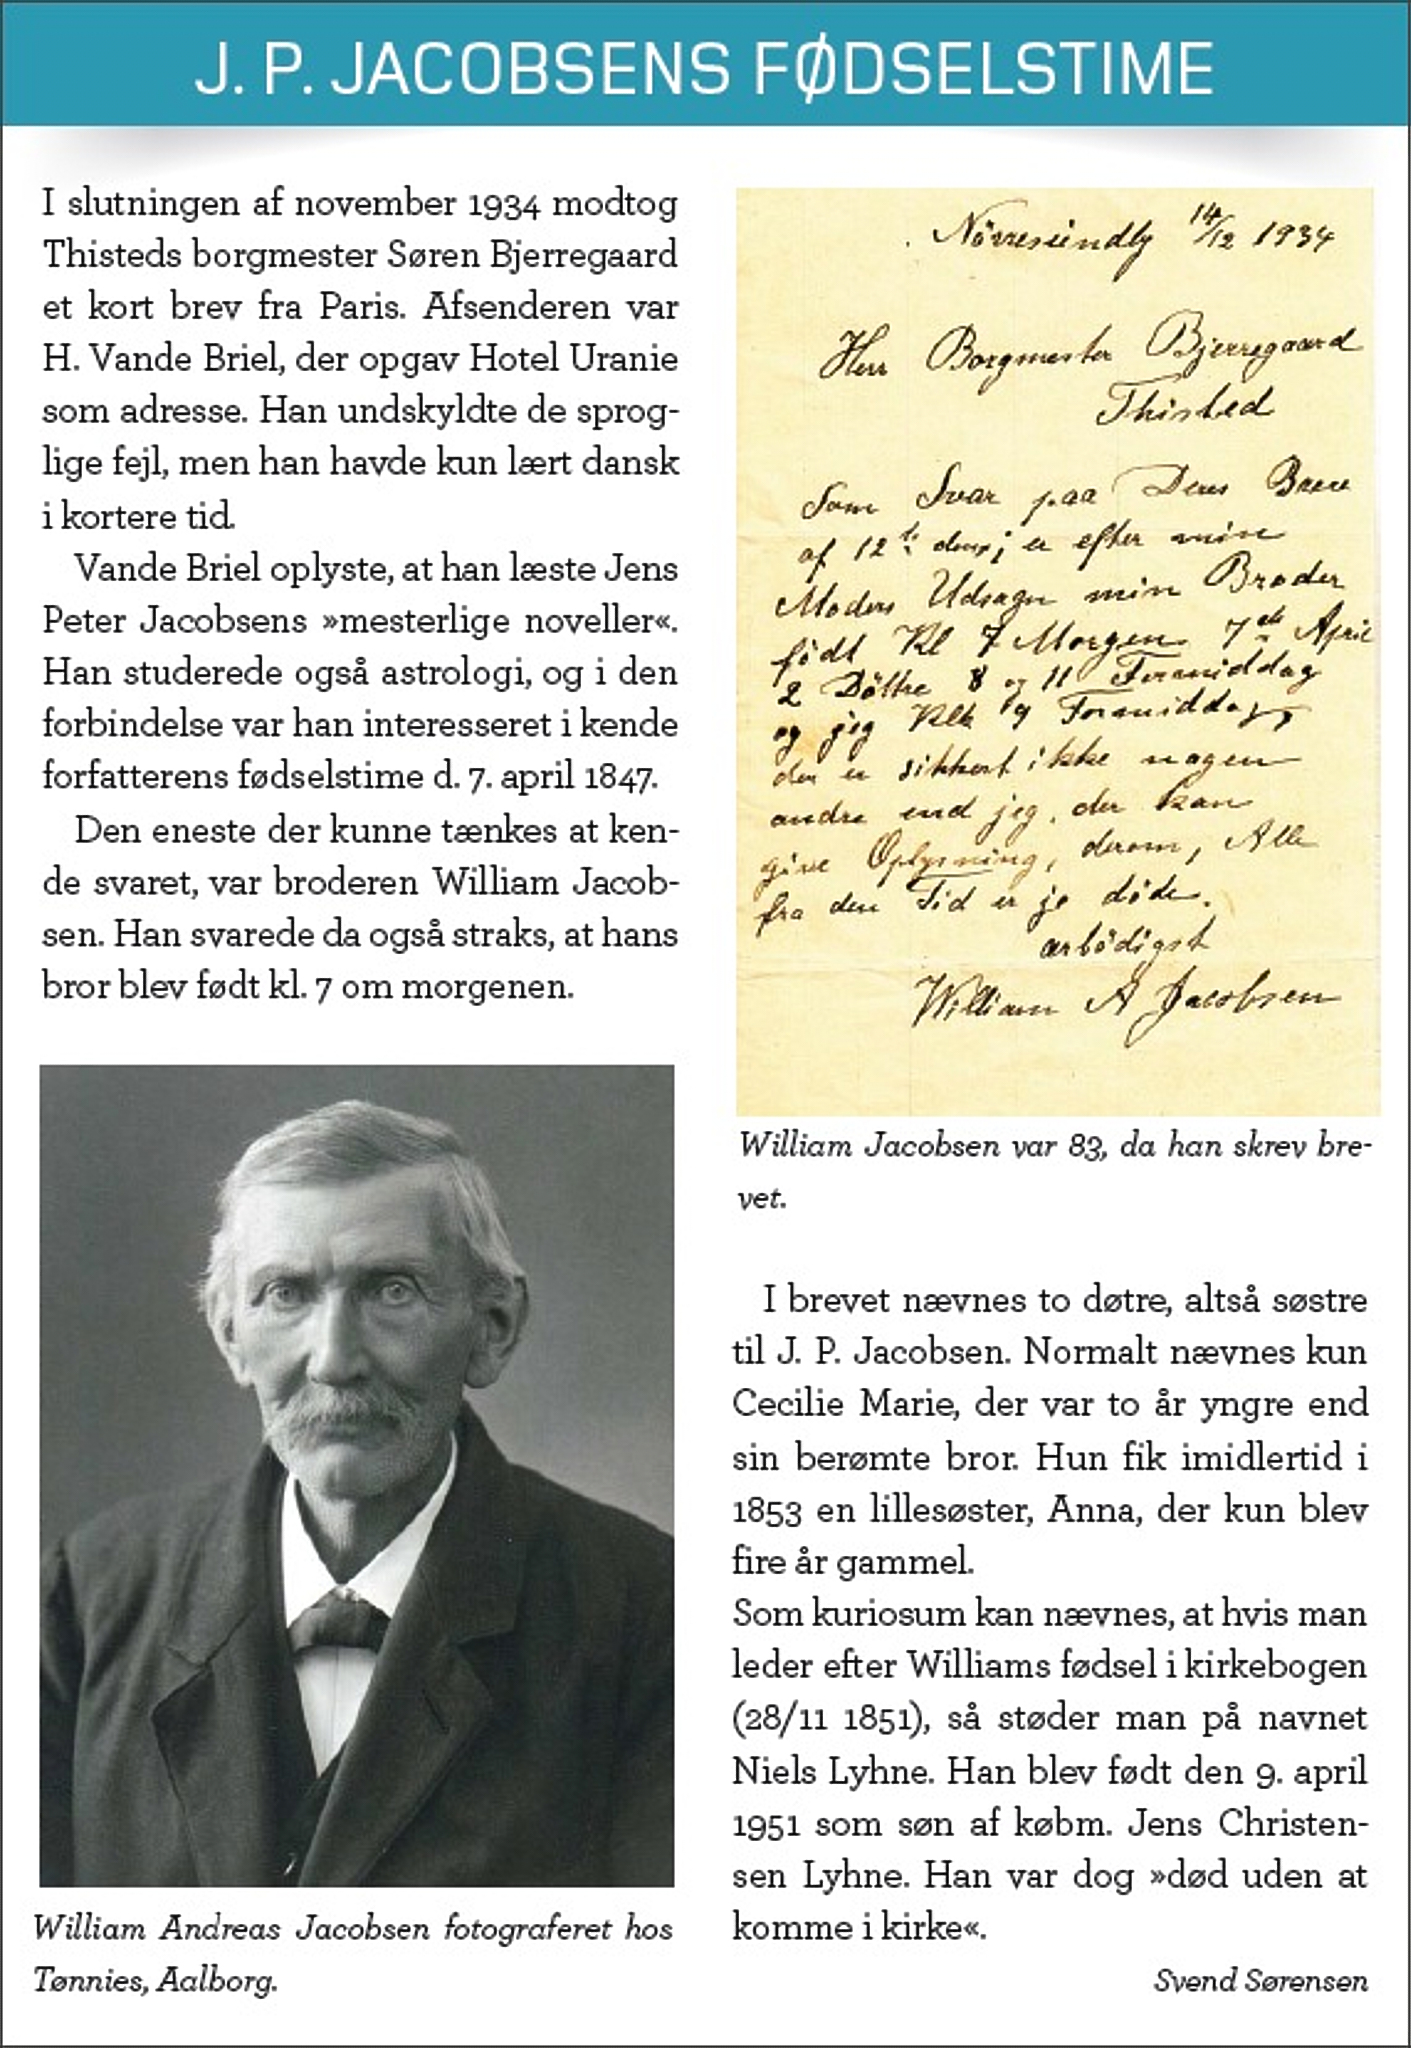 J. P. JACOBSENS FØDSELSTIME
I slutningen af november 1934 modtog
Thisteds borgmester Søren Bjerregaard
et kort brev fra Paris. Afsenderen var
H. Vande Briel, der opgav Hotel Uranie
som adresse. Han undskyldte de sprog-
lige fejl, men han havde kun lært dansk
i kortere tid.
Vande Briel oplyste, at han læste Jens
Peter Jacobsens »mesterlige noveller«.
Han studerede også astrologi, og i den
forbindelse var han interesseret i kende
forfatterens fødselstime d. 7. april 1847.
Den eneste der kunne tænkes at ken-
de svaret, var broderen William Jacob-
sen. Han svarede da også straks, at hans
bror blev født kl. 7 om morgenen.
William Andreas Jacobsen fotograferet hos
Tønnies, Aalborg.
Nörresundby 14/12 1934
Herr Borgmester Bjerregaard
Thisted
Som Svar paa Deres Brev
af 12 er efter min
Moders Udsagn min Broder
födt Kl 7 Morgen 7de April
2 Döttre 8 og 11 Formiddag
og jeg Klk 9 Formiddag,
der er sikkert ikke nogen
andre end jeg, der kan
give Oplysning, derom, Alle
fra den Tid er jo döde.
ærbödigst
William A Jacobsen
William Jacobsen var 83, da han skrev bre-
vet.
I brevet nævnes to døtre, altså søstre
til J. P. Jacobsen. Normalt nævnes kun
Cecilie Marie, der var to år yngre end
sin berømte bror. Hun fik imidlertid i
1853 en lillesøster, Anna, der kun blev
fire år gammel.
Som kuriosum kan nævnes, at hvis man
leder efter Williams fødsel i kirkebogen
(28/11 1851), så støder man på navnet
Niels Lyhne. Han blev født den 9. april
1951 som søn af købm. Jens Christen-
sen Lyhne. Han var dog »død uden at
komme i kirke«.
Svend Sørensen